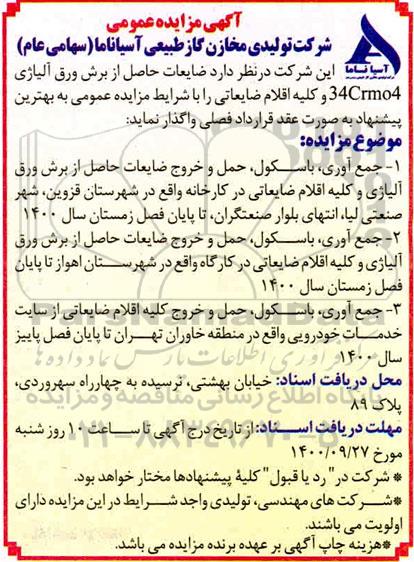 آگهی مزایده عمومی
شرکت تولیدی مخازن گاز طبیعی آسیاناما (سهامی عام)
آسیا ناما
این شرکت درنظر دارد ضایعات حاصل از برش ورق آلیاژی
34Crmo4 و کلیه اقلام ضایعاتی را با شرایط مزایده عمومی به بهترین
پیشنهاد به صورت عقد قرارداد فصلی واگذار نماید:
موضوع مزایده:
۱- جمع آوری، باسکول، حمل و خروج ضایعات حاصل از برش ورق
آلیاژی و کلیه اقلام ضایعاتی در کارخانه واقع در شهرستان قزوین، شهر
صنعتی لیا، انتهای بلوار صنعتگران، تا پایان فصل زمستان سال ۱۴۰۰
۲- جمع آوری، باسکول، حمل و خروج ضایعات حاصل از برش ورق
آلیاژی و کلیه اقلام ضایعاتی در کارگاه واقع در شهرستان اهواز تا پایان
فصل زمستان سال ۱۴۰۰
۳- جمع آوری، باسکول، حمل و خروج کلیه اقلام ضایعاتی از سایت
خدمات خودرویی واقع در منطقه خاوران تهران تا پایان فصل پاییز
سال ۱۴۰۰
محل دریافت اسناد: خیابان بهشتی، نرسیده به چهارراه سهروردی،
پلاک ۸۹
مهلت دریافت اسناد: از تاریخ درج آگهی تا ساعت ۱۰ روز شنبه
مورخ ۱۴۰۰/۰۹/۲۷
* شرکت در "رد یا قبول" کلیهٔ پیشنهادها مختار خواهد بود.
* شرکت های مهندسی، تولیدی واجد شرایط در این مزایده دارای
اولویت می باشند.
* هزینه چاپ آگهی بر عهده برنده مزایده می باشد.